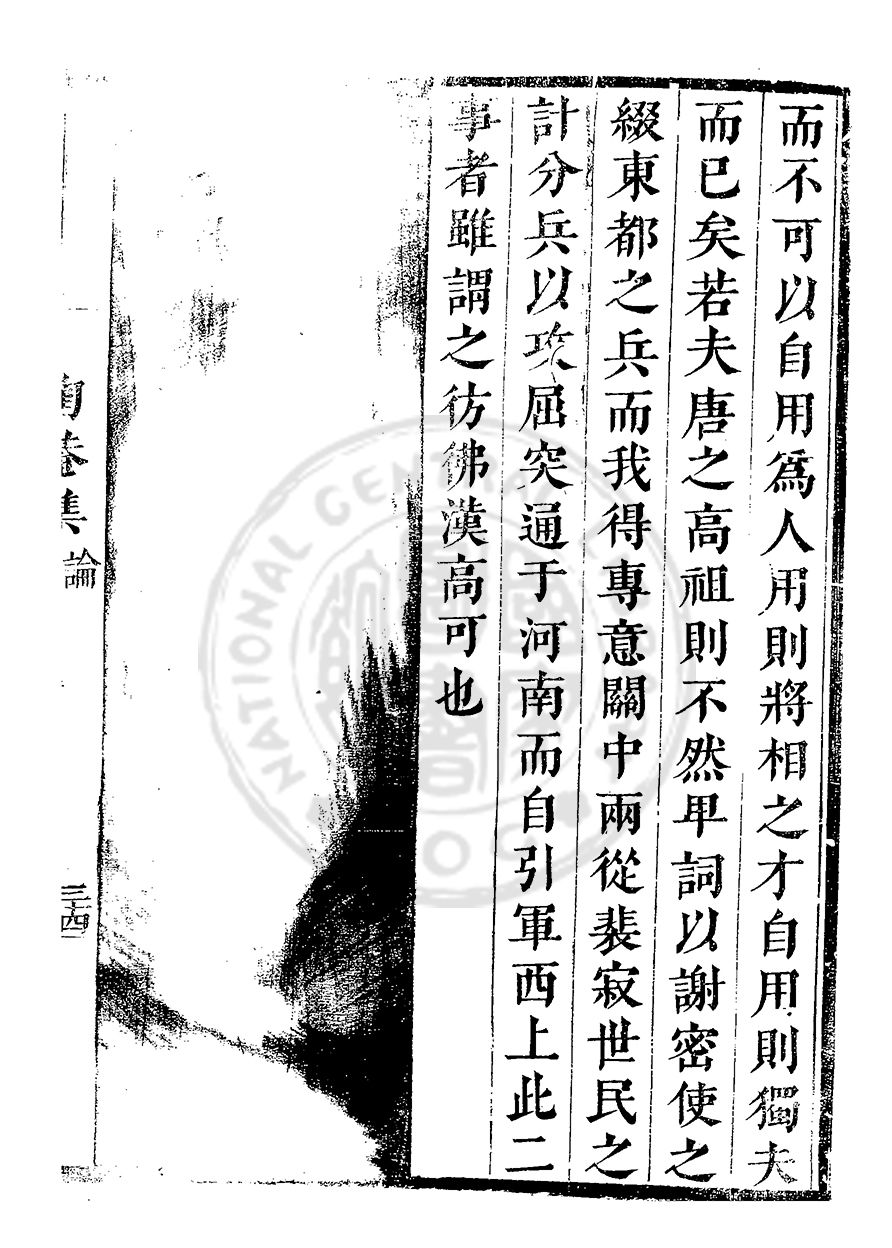 而不可以自用爲人用則將相之才自用則獨夫
而已矣若夫唐之高祖則不然卑詞以謝密使之
綴東都之兵而我得專意關中兩從裴寂世民之
計分兵以攻屈突通于河南而自引軍西上此二
事者雖謂之彷彿漢高可也
陶菴集
論
三十四
NATIONAL CENTRAL